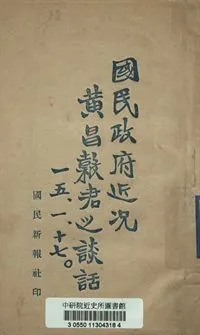 國民政府近況
黃昌穀君之談話
一五、一、十七。
國民新報社印
中研院近史所圖書館
3 0550 11304318 4